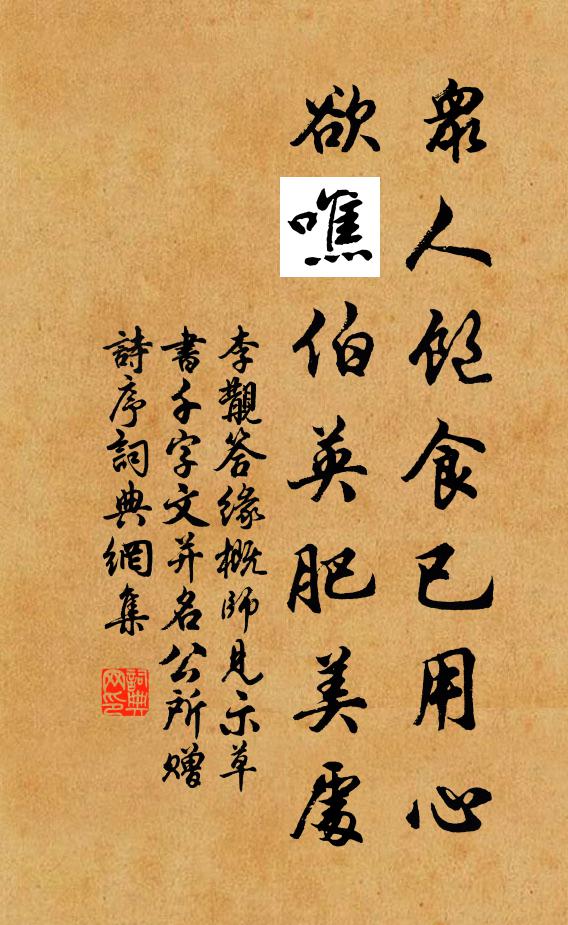 衆人飽食已用心
欲噍伯英肥美處
李覯答緣概師見示草
書千字文并名公所贈
詩序詞典網集
詞典網印